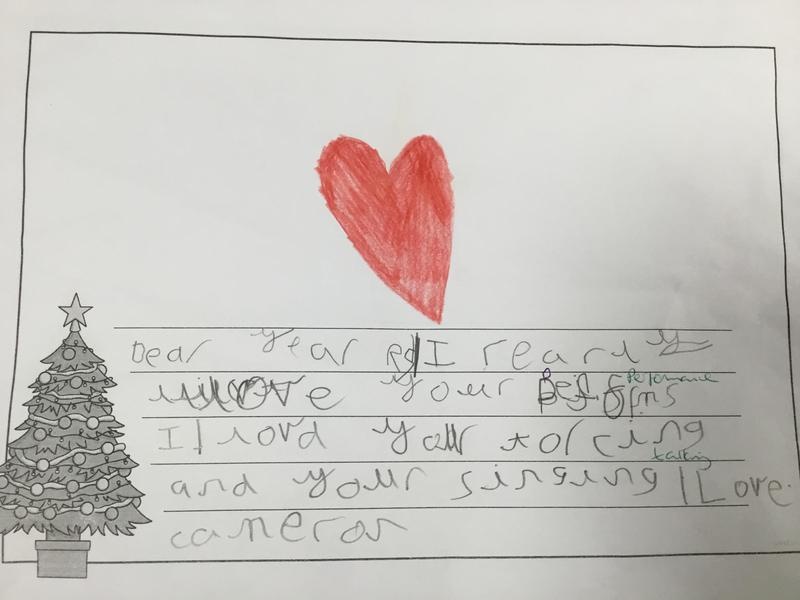 Dear Year R I rearly
love your performs
Performance
I lovd your torcing
talking
and your singing Love
cameron